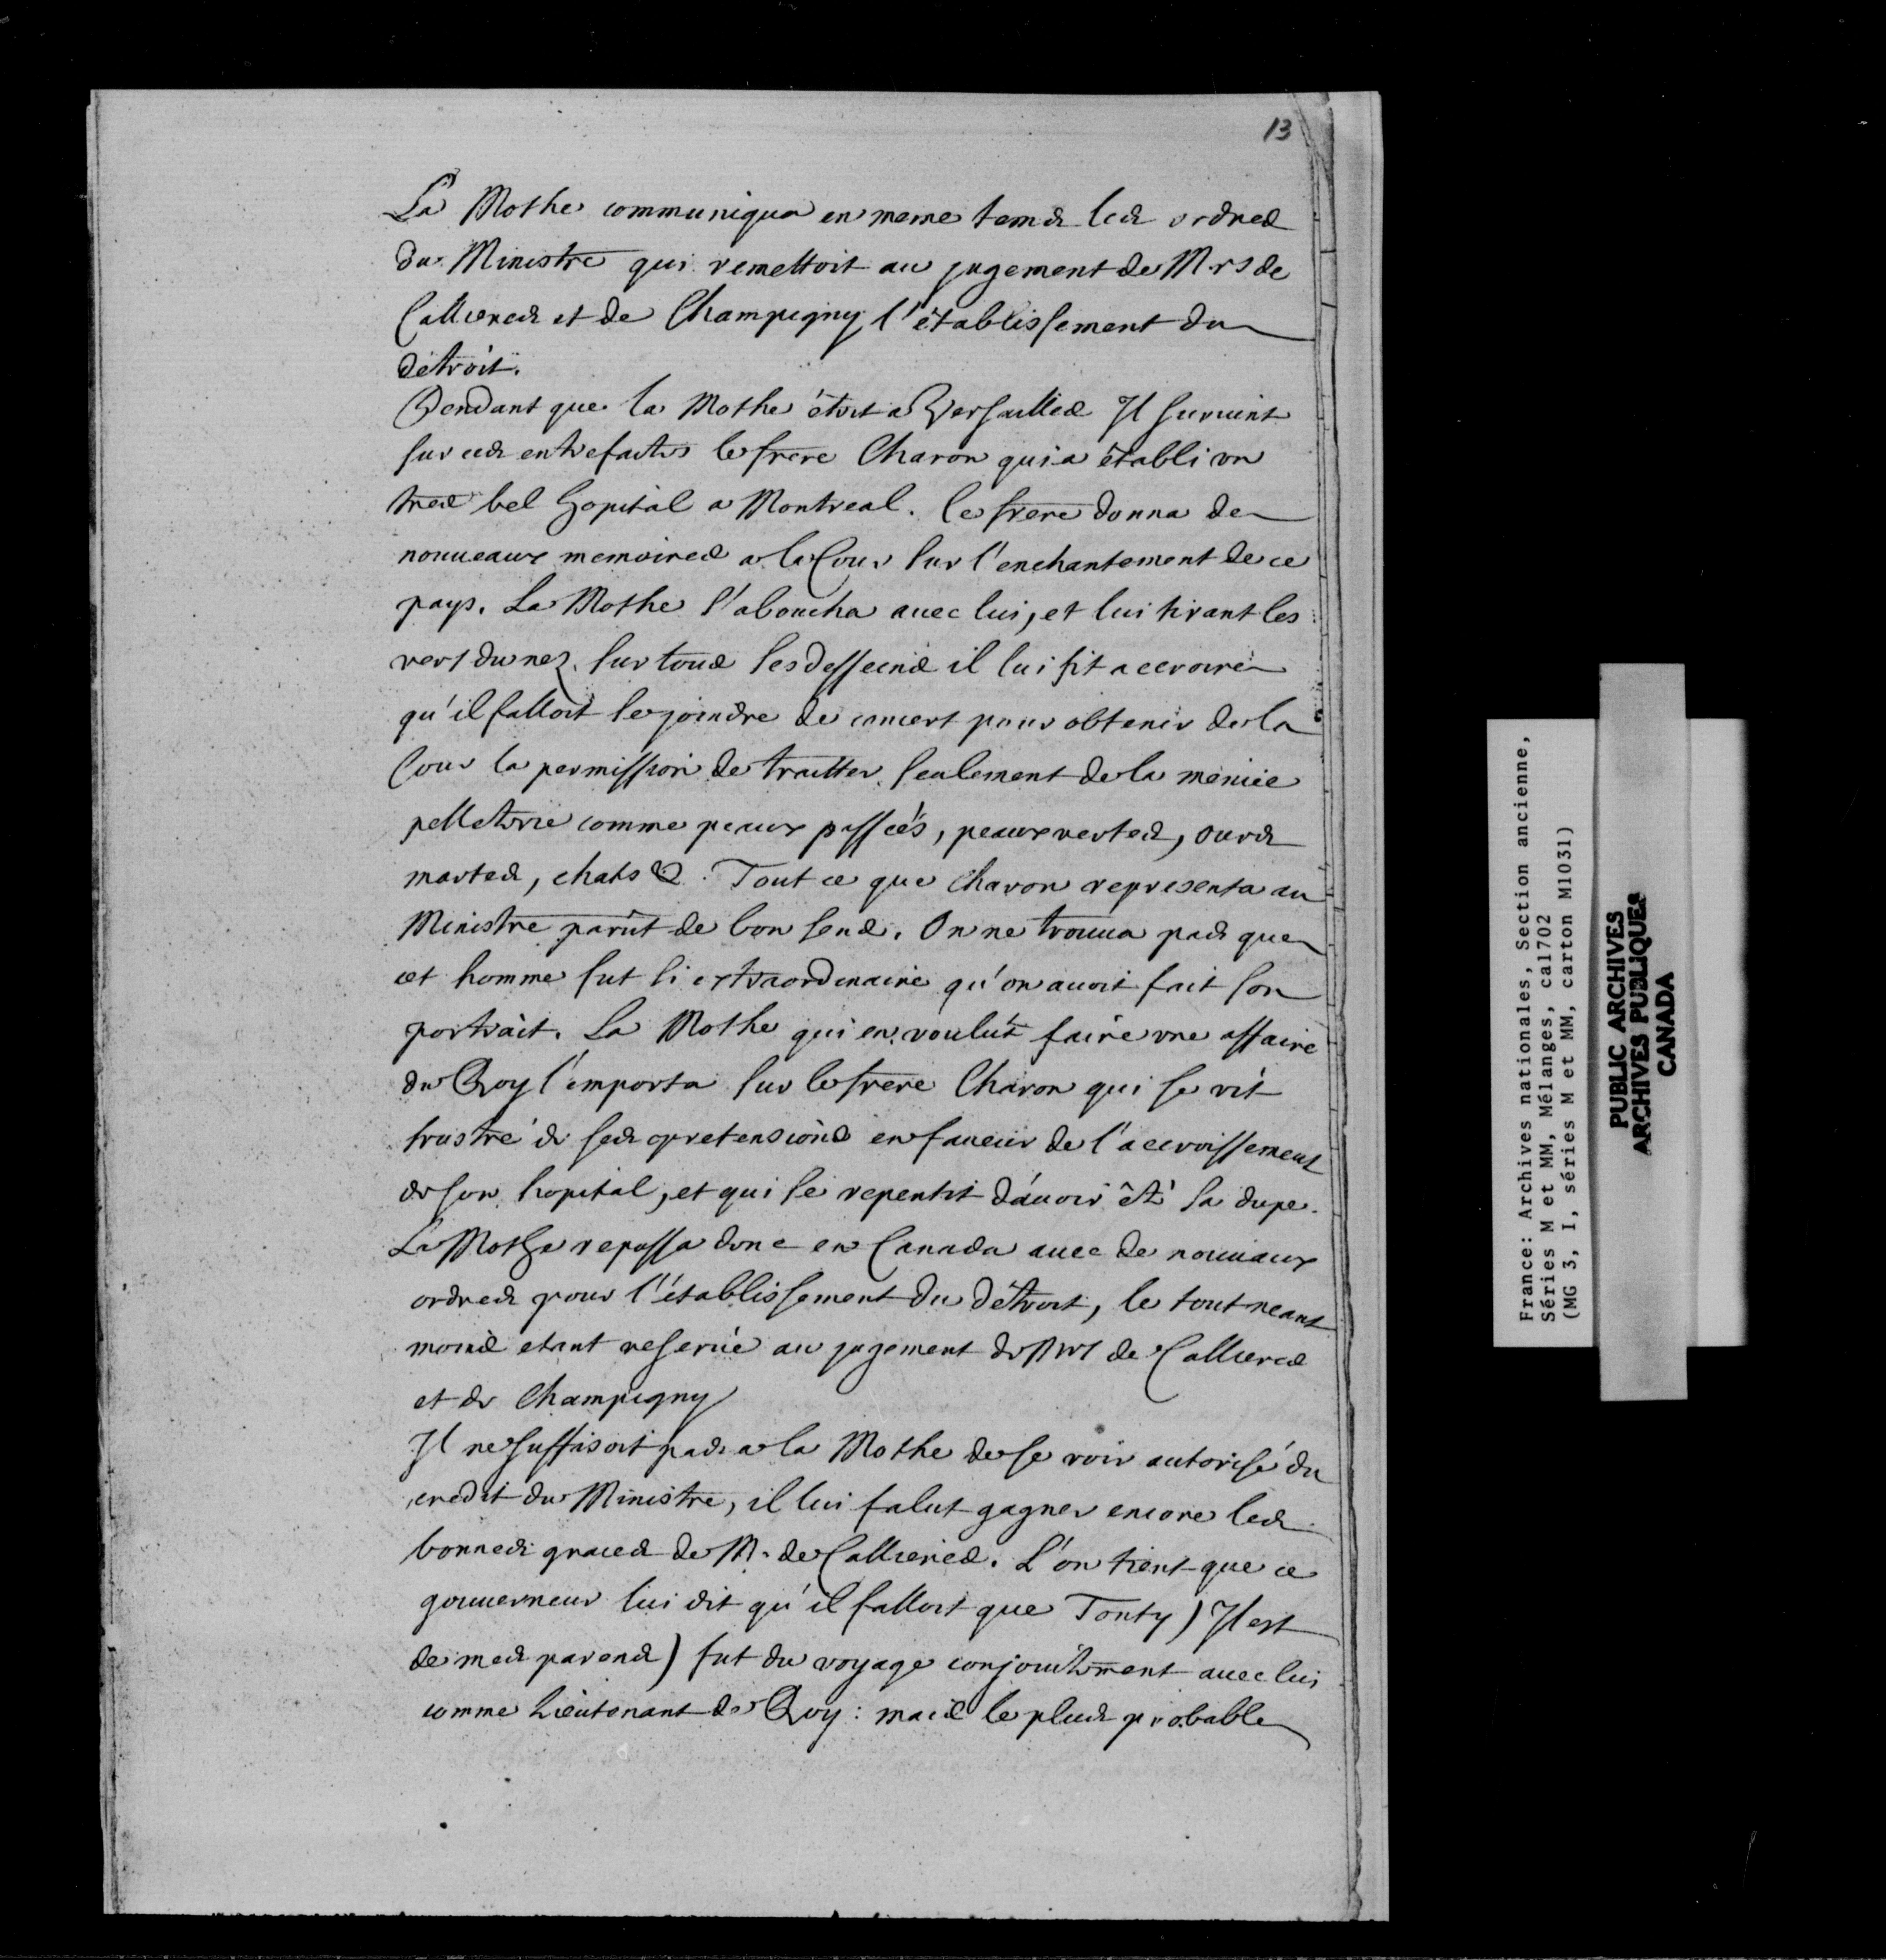 13
La Mothe communiqua en meme tems les ordres
du Ministre qui remettoit au jugement de Mrs de
Callieres et de Champigny l'établissement du
détroit.
Pendant que la Mothe étoit a Versailles Il survint
sur ces entrefaites le frere Charon qui a établi vn
tres bel hopital a Montreal. Ce frere donna de
nouueaux memoires a la Cour sur l'enchantement de ce
pays. La Mothe s'aboucha auec lui, et lui tirant les
vers du nez sur tous ses desseins il lui fit accroire
qu'il falloit se joindre de concert pour obtenir de la
Cour la permission de traitter seulement de la menüe
pelleterie comme peaux passées, peaux vertes, ours
martes, chats &. Tout ce que Charon representa au
Ministre parut de bon sens. On ne trouua pas que
cet homme fut si extraordinaire qu'on auoit fait son
portrait. La Mothe qui en voulut faire vne affaire
du Roy l'emporta sur le frere Charon qui se vit
frustré de ses pretensions en faueur de l'accroissement
de son hopital, et qui se repentit d'auoir été sa dupe.
La Mothe repassa donc en Canada auec de nouuaux
ordres pour l'établissement du détroit, le tout neant
moins etant reserué au jugement de Mrs de Callieres
et de Champigny
Il ne suffisoit pas a la Mothe de se voir autorisé du
credit du Ministre, il lui falut gagner encore les
bonnes graces de M. de Callieres. L'on tient que ce
gouuerneur lui dit qu'il falloit que Tonty ) Il est
de mes parens ) fut du voyage conjointement auec lui
comme Lieutenant de Roy: mais le plus probable
France: Archives nationales, Section ancienne,
Séries M et MM, Mélanges, ca1702
(MG 3, I, séries M et MM, carton M1031)
PUBLIC ARCHIVES
ARCHIVES PUBLIQUES
CANADA